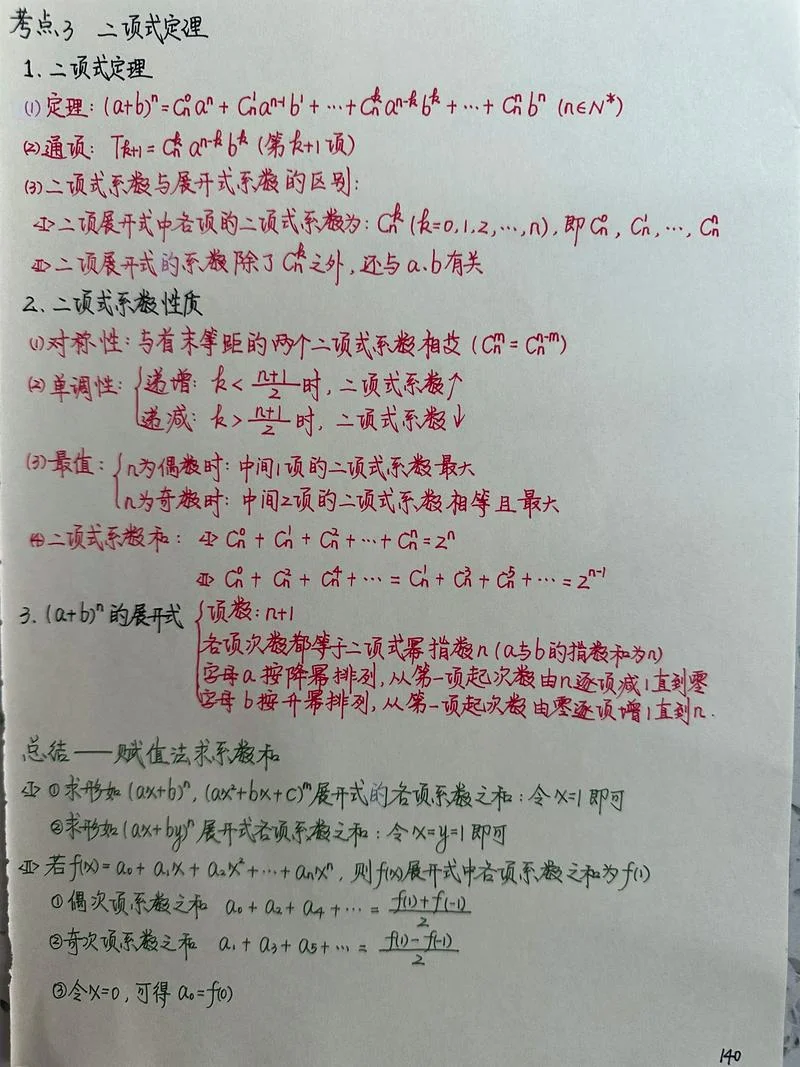 考点3 二项式定理
1. 二项式定理
(1) 定理: (a+b)ⁿ = Cₙ⁰aⁿ + Cₙ¹aⁿ⁻¹b¹ + ⋯ + Cₙᵏaⁿ⁻ᵏbᵏ + ⋯ + Cₙⁿbⁿ (n∈N*)
(2) 通项: Tₖ₊₁ = Cₙᵏaⁿ⁻ᵏbᵏ (第k+1项)
(3) 二项式系数与展开式系数的区别:
<I> 二项展开式中各项的二项式系数为: Cₙᵏ (k=0,1,2,⋯,n), 即Cₙ⁰, Cₙ¹, ⋯, Cₙⁿ
<II> 二项展开式的系数除了Cₙᵏ之外, 还与a.b有关
2. 二项式系数性质
(1) 对称性: 与首末等距的两个二项式系数相等 (Cₙᵐ = Cₙⁿ⁻ᵐ)
(2) 单调性: { 递增: k < (n+1)/2 时, 二项式系数↑
递减: k > (n+1)/2 时, 二项式系数↓
(3) 最值: { n为偶数时: 中间1项的二项式系数最大
n为奇数时: 中间2项的二项式系数相等且最大
(4) 二项式系数和: <I> Cₙ⁰ + Cₙ¹ + Cₙ² + ⋯ + Cₙⁿ = 2ⁿ
<II> Cₙ⁰ + Cₙ² + Cₙ⁴ + ⋯ = Cₙ¹ + Cₙ³ + Cₙ⁵ + ⋯ = 2ⁿ⁻¹
3. (a+b)ⁿ的展开式 { 项数: n+1
各项次数都等于二项式幂指数n (a与b的指数和为n)
字母a按降幂排列, 从第一项起次数由n逐项减1直到零
字母b按升幂排列, 从第一项起次数由零逐项增1直到n.
总结——赋值法求系数和
<I> ①求形如(ax+b)ⁿ, (ax²+bx+c)ᵐ展开式的各项系数之和: 令x=1即可
②求形如(ax+by)ⁿ展开式各项系数之和: 令x=y=1即可
<II> 若f(x)=a₀+a₁x+a₂x²+⋯+aₙxⁿ, 则f(x)展开式中各项系数之和为f(1)
①偶次项系数之和 a₀+a₂+a₄+⋯ = (f(1)+f(-1))/2
②奇次项系数之和 a₁+a₃+a₅+⋯ = (f(1)-f(-1))/2
③令x=0, 可得a₀=f(0)
140